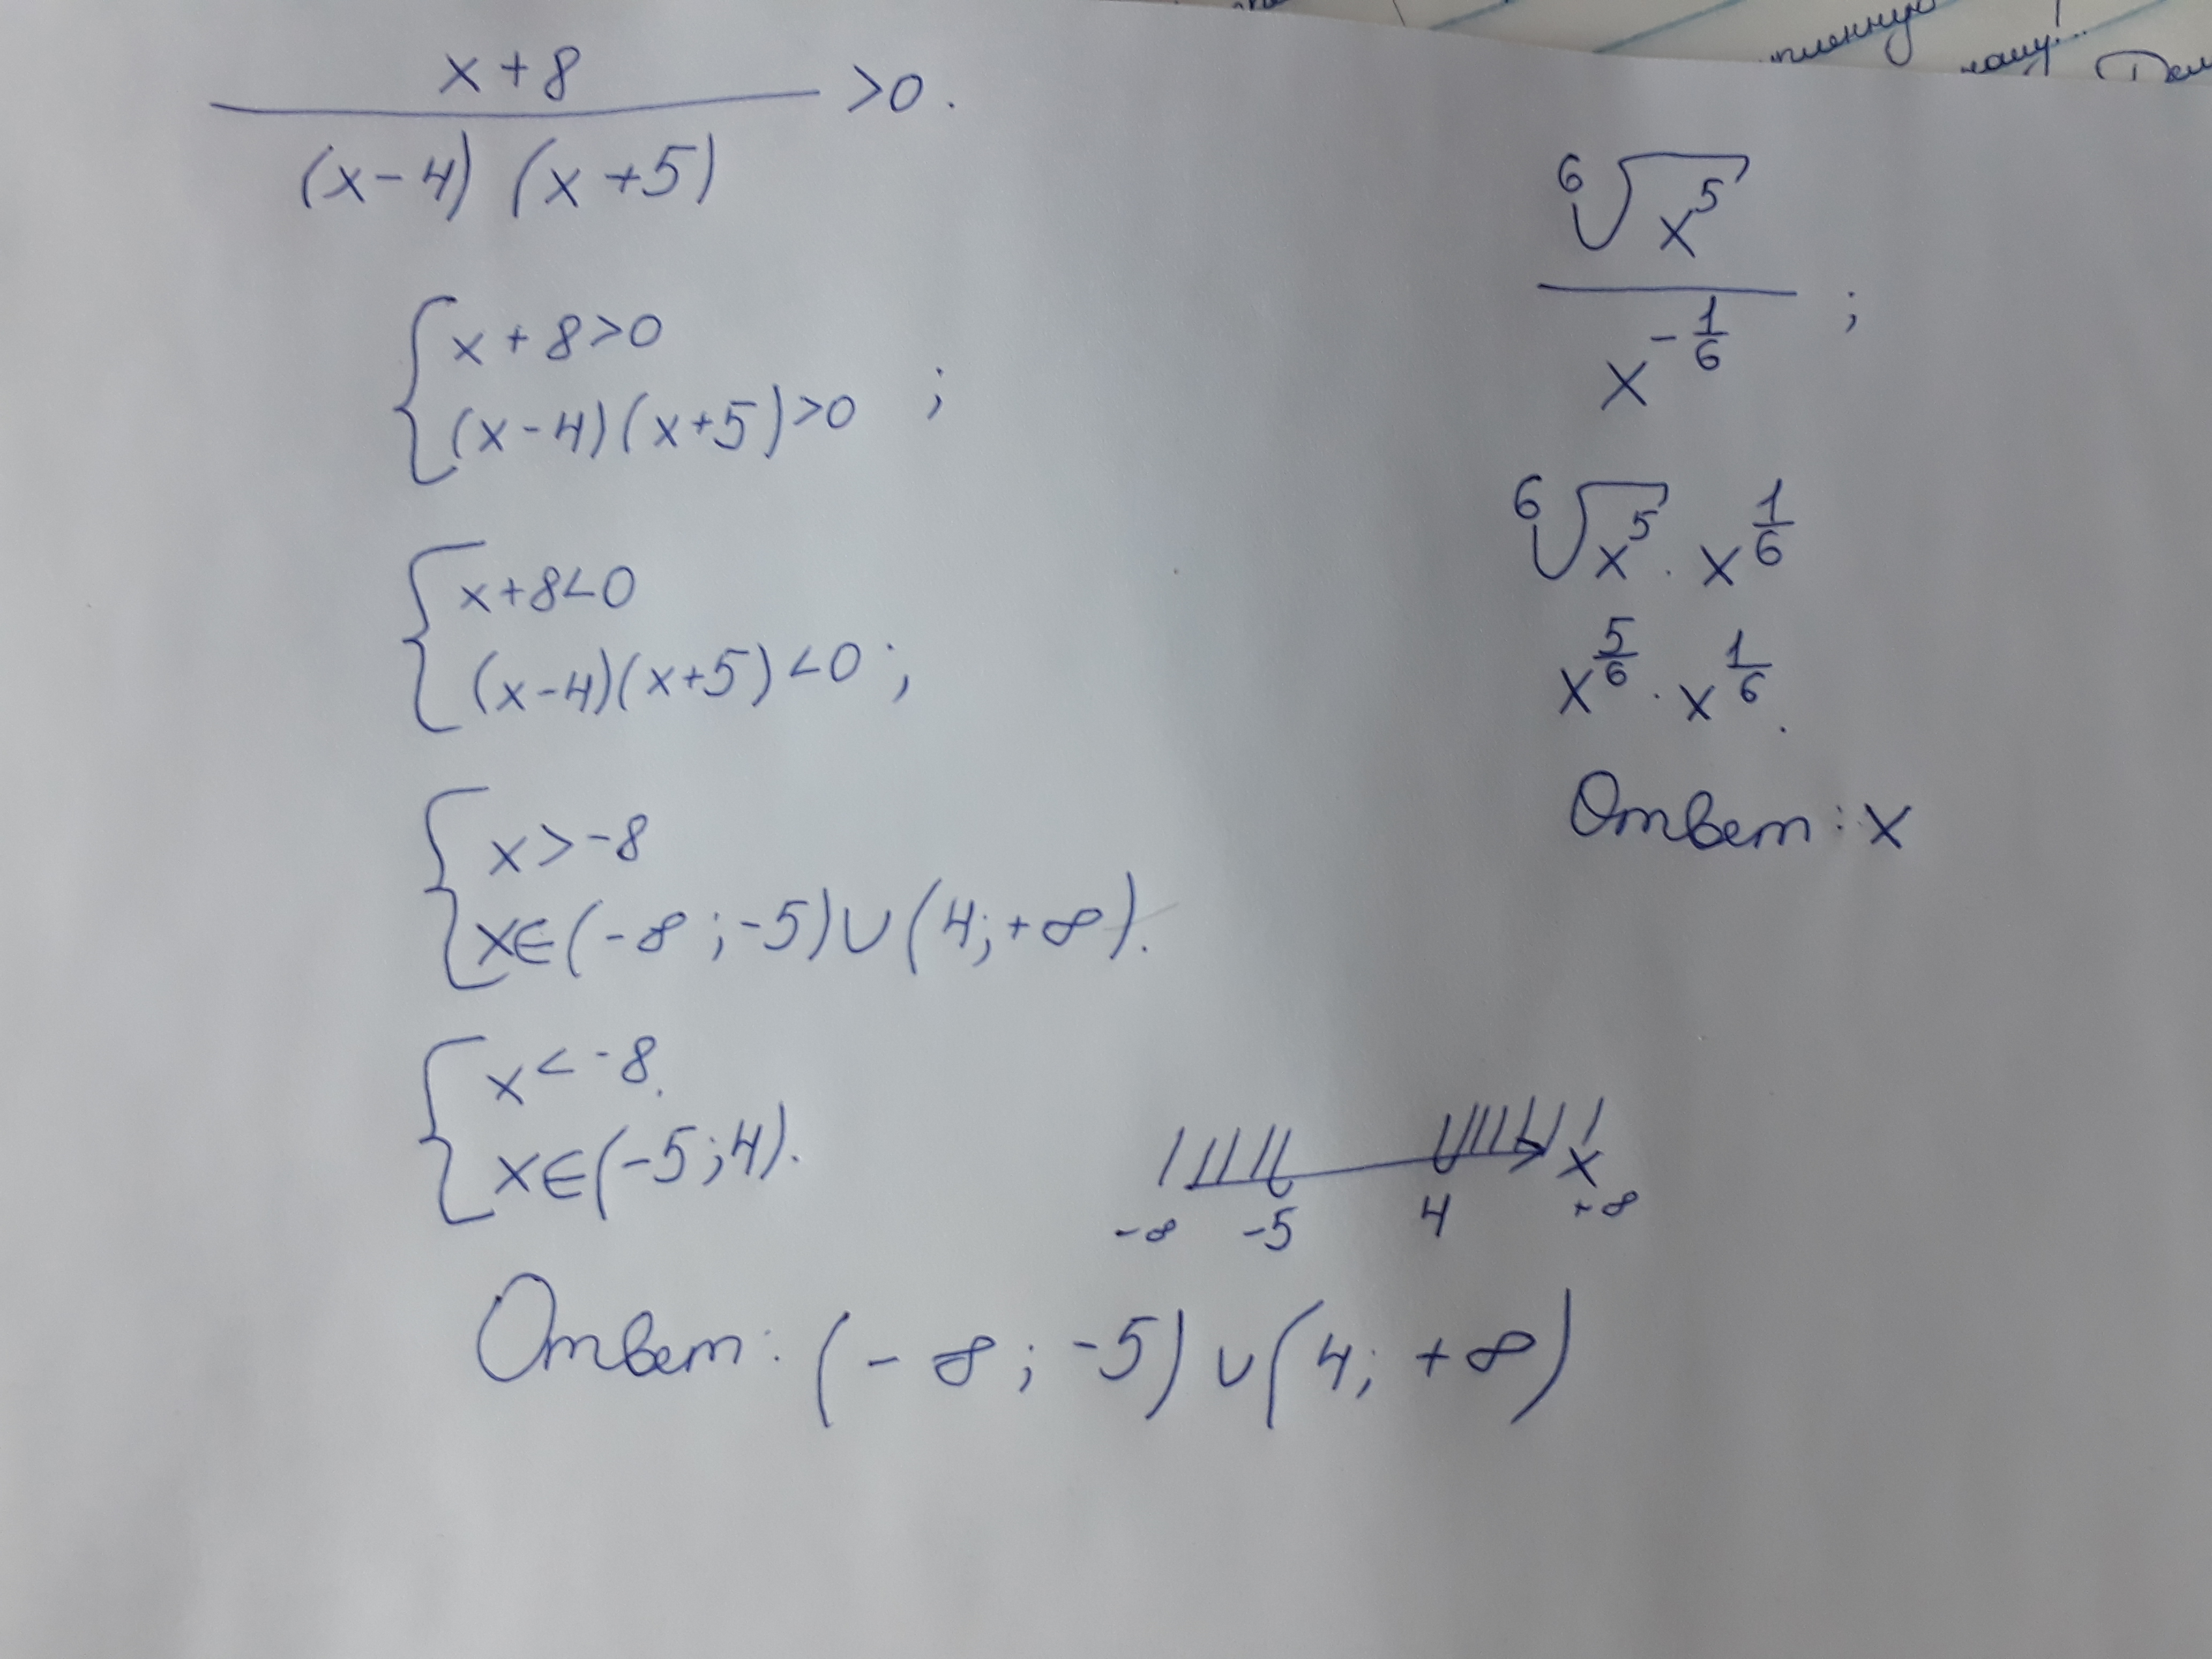 x+8
―――――――― >0.
(x-4) (x+5)
{ x+8>0
(x-4)(x+5)>0 ;
{ x+8<0
(x-4)(x+5)<0;
{ x>-8
x∈(-∞;-5)∪(4;+∞).
{ x<-8.
x∈(-5;4).
-∞ -5 4 x +∞
Ответ: (-∞; -5)∪(4; +∞)
⁶√x⁵
―――― ;
x^(-1/6)
⁶√x⁵ · x^(1/6)
x^(5/6) · x^(1/6).
Ответ: x